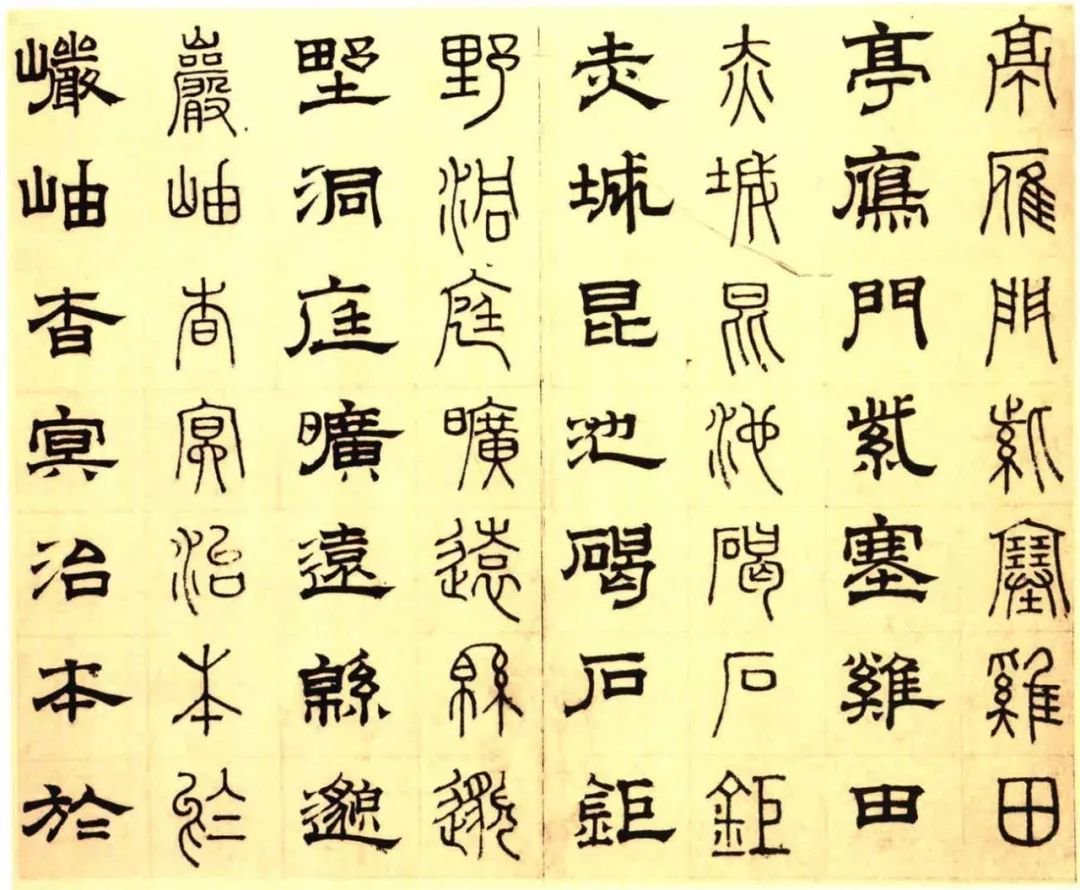 亭雁門紫塞雞田
亭鴈門紫塞雞田
赤城昆池碣石鉅
赤城昆池碣石鉅
野洞庭曠遠緜邈
野洞庭曠遠緜邈
巖岫杳冥治本於
巖岫杳冥治本於